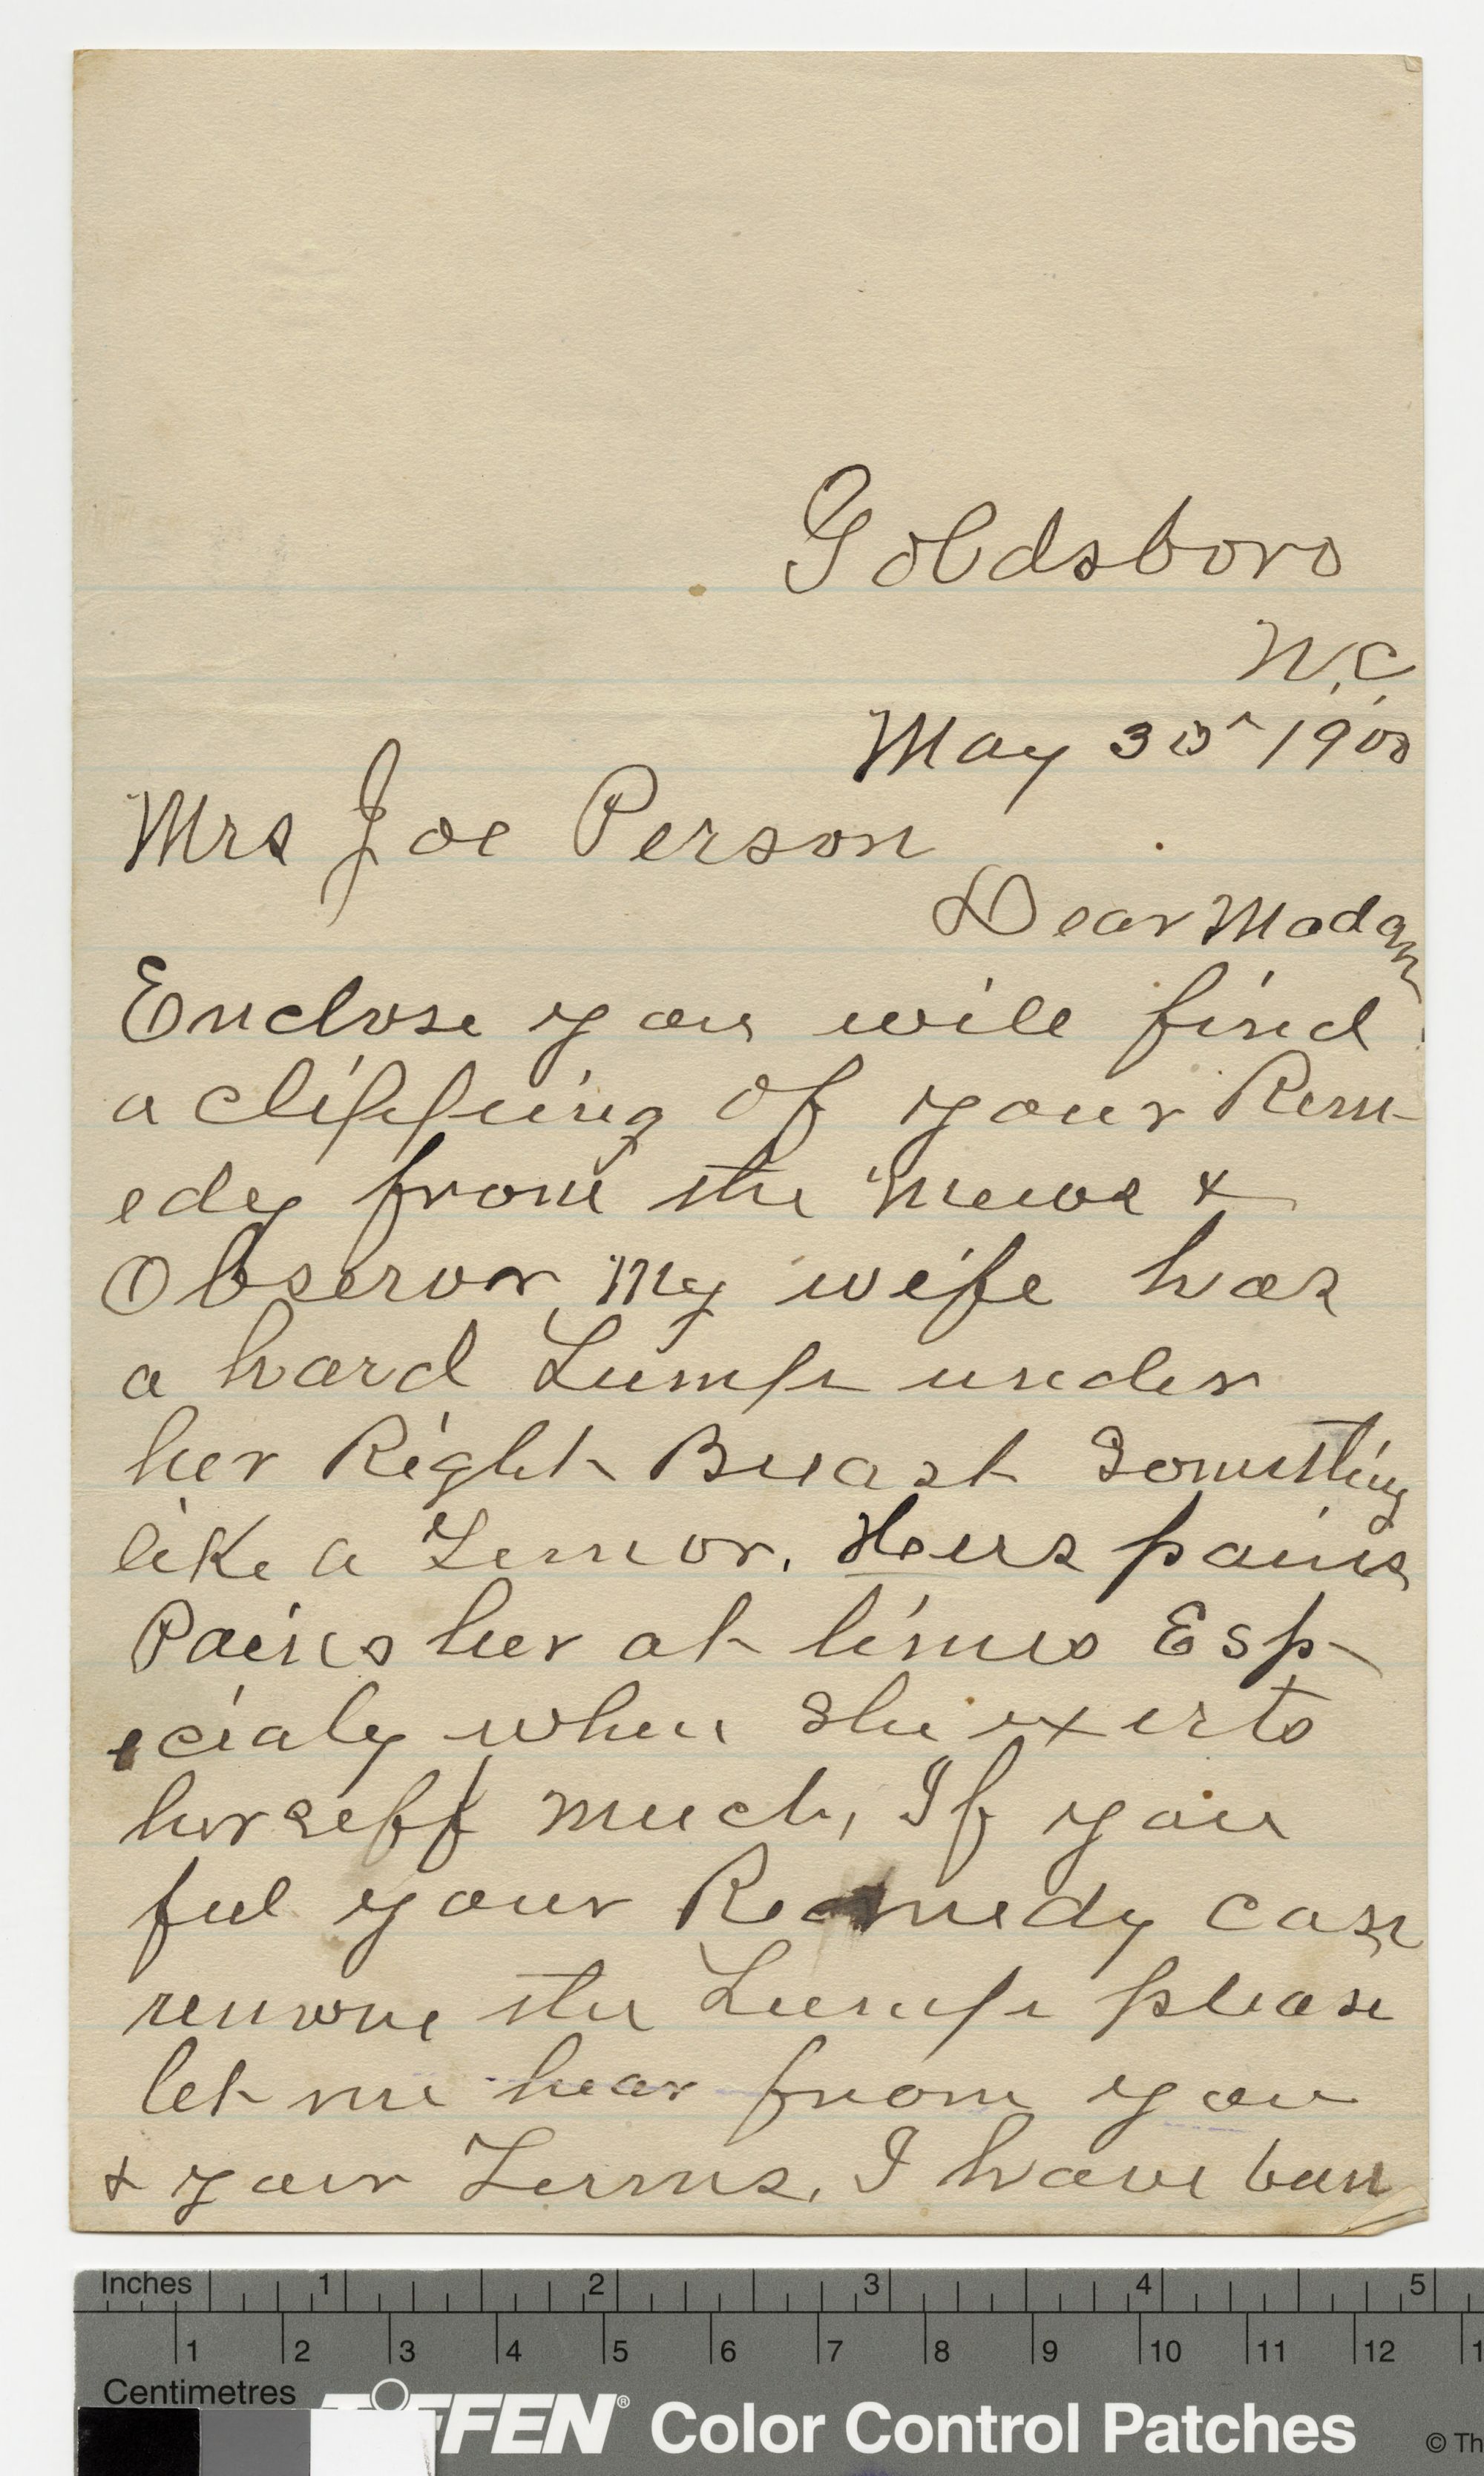 Goldsboro
N.C.
May 30" 1900
Mrs Joe Person
Dear Madam
Enclose you will find
a clipping of your Rem-
edy from the News &
Observer, My wife has
a hard Lump under
her Right Breast Something
like a Tumor. Hers pains
Pains her at times Esp-
ecialy when she exerts
herself much, If you
feel your Remedy can
remove the Lump please
let me hear from you
& your Terms, I have been
Inches 1 2 3 4 5
1 2 3 4 5 6 7 8 9 10 11 12
Centimetres
TIFFEN® Color Control Patches © Th